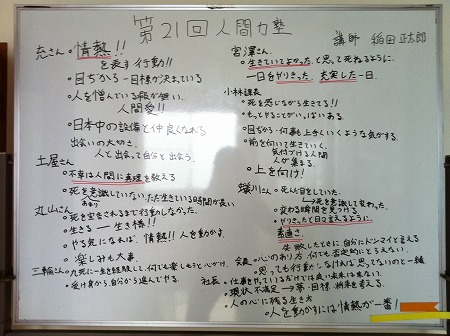 第21回人間力塾
講師 稲田正太郎
充さん・情熱!!
を表す行動!!
・目ぢから―目標が決まっている
・人を憎んでいる暇が無い
人間愛!!
・日本中の設備と仲良くなれる
出会いの大切さ。
人と出会って自分と出会う。
土屋さん
・不幸は人間に真理を教える
・死を意識していない、ただ生きている時間が長い
あまり
丸山さん
・死を宣告されるまで行動しなかった。
・生きる―生き様!!
・やる気になれば、情熱!!人を動かす。
・楽しみも大事。
三輪さん・九死に一生を経験して、何でも楽しもうと心がけ
・受け身から、自分から進んでやる。
宮澤さん
・生きていてよかったと思って死ねるように、
一日をやりきった、充実した一日。
小林課長
・死を感じながら生きてる!!
・もっとやることがいっぱいある。
・目ぢから・何事も上手くいくような気がする。
・前を向いて生きていく。
気付ける人間
人が集まる。
・上を向け!
蟻川さん
・死んだ目をしていた。
→死を意識して変わった。
・変わる瞬間を見つける
・やりきったと日々言えるように。
素直さ。
・失敗したときに自分にドンマイと言える
会長・心のあり方 何でも否定的にとらえない
・思っても行動しなければ思ってないのと一緒
社長・仕事をやっているだけでは良い未来は来ない。
・現状不満足→夢・目標、将来を考える。
・人の心に残る生き方
・人を動かすには情熱が一番!